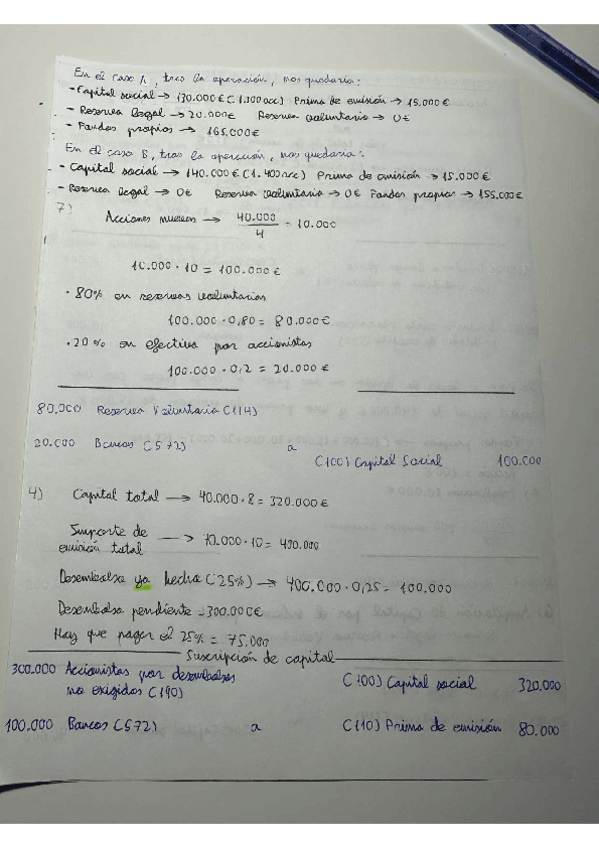 En el caso A, tras la operación, nos quedaría:
- Capital social → 130.000€ (1.300 acc) Prima de emisión → 15.000€
- Reserva legal → 20.000€ Reserva voluntaria → 0€
- Fondos propios → 165.000€
En el caso B, tras la operación, nos quedaría:
- Capital social → 140.000€ (1.400 acc) Prima de emisión → 15.000€
- Reserva legal → 0€ Reserva voluntaria → 0€ Fondos propios → 155.000€
7)
Acciones nuevas → 40.000/4 = 10.000
10.000 · 10 = 100.000€
· 80% en reservas voluntarias
100.000 · 0,80 = 80.000€
· 20% en efectivo por accionistas
100.000 · 0,2 = 20.000€
80.000 Reserva Voluntaria (114)
20.000 Bancos (572) a
(100) Capital Social 100.000
4) Capital total → 40.000 · 8 = 320.000€
Importe de emisión total → 40.000 · 10 = 400.000
Desembolso ya hecho (25%) → 400.000 · 0,25 = 100.000
Desembolso pendiente = 300.000€
Hay que pagar el 25% = 75.000
Suscripción de capital
300.000 Accionistas por desembolsos (100) Capital social 320.000
no exigidos (190)
100.000 Bancos (572) a (110) Prima de emisión 80.000